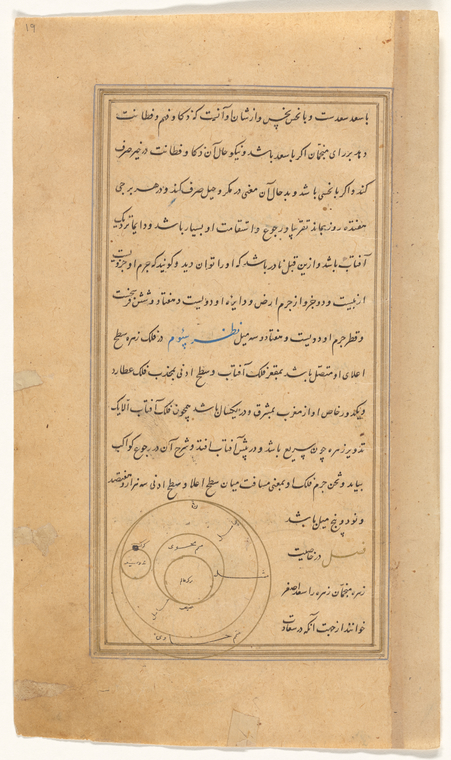 ۱۹
با سعد سعدست و با نحس نحس و از شان او آنست که ذکا و فهم و فطانت
دهد برای منجمان اگر با سعد باشد و نیکو حال آن ذکا و فطانت در خیر صرف
کند و اگر با نحس باشد و بد حال آن معنی در مکر و حیل صرف کند و در هر برجی
هفده روز بماند تقریبا و رجوع و استقامت او بسیار باشد و دایما نزدیک
آفتاب باشد و ازین قبل نادر باشد که او را توان دید و گویند که جرم او جزویست
از بیست و دو جزو از جرم ارض و دایره او دویست و هفتاد و شش فرسخست
و قطر جرم او دویست و هفتاد و سه میل نظر سیوم در فلک زهره سطح
اعلای او متصل باشد بمقعر فلک آفتاب و سطح ادنی بمحدب فلک عطارد
و یکدور خاص او از مغرب بمشرق و در یکسال باشد همچون فلک آفتاب الا یک
تدویر زهره چون سریع باشد و در پیش آفتاب افتد و شرح آن در رجوع کواکب
بیاید و ثخن جرم فلک او بمعنی مسافت میان سطح اعلا و سطح ادنی سه هزار و هفتصد
و نود و پنج میل باشد
فصل در خاصیت
زهره منجمان زهره را سعد اصغر
خوانند از جهت آنکه در سعادت